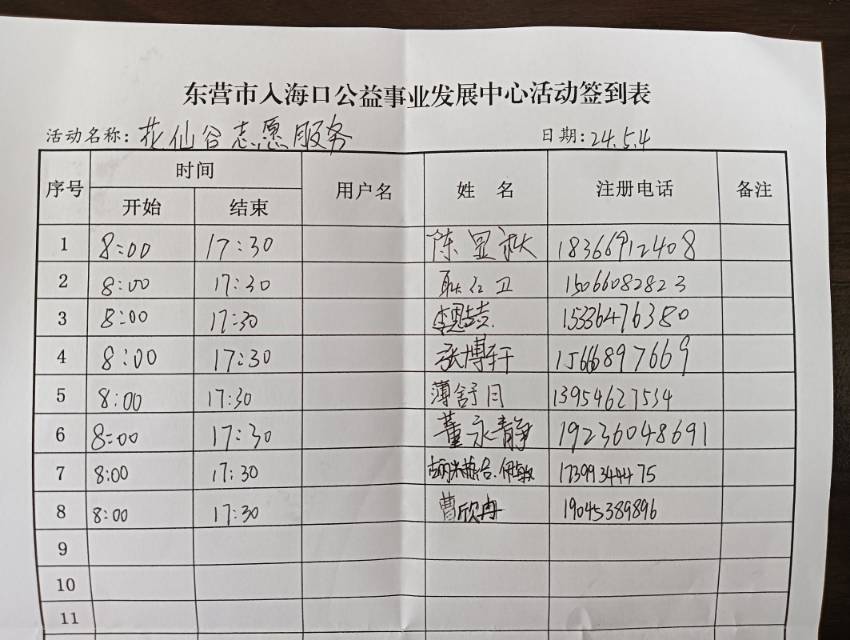 东营市入海口公益事业发展中心活动签到表
活动名称: 花仙谷志愿服务 日期: 24.5.4
序号 时间 用户名 姓 名 注册电话 备注
开始 结束
1 8:00 17:30 陈显秋 18366912408
2 8:00 17:30 耿红卫 15066082823
3 8:00 17:30 15336476380
4 8:00 17:30 张博轩 15666897669
5 8:00 17:30 薄舒月 13954627534
6 8:00 17:30 董永静 19236048691
7 8:00 17:30 17399344475
8 8:00 17:30 曹欣冉 19045389896
9
10
11